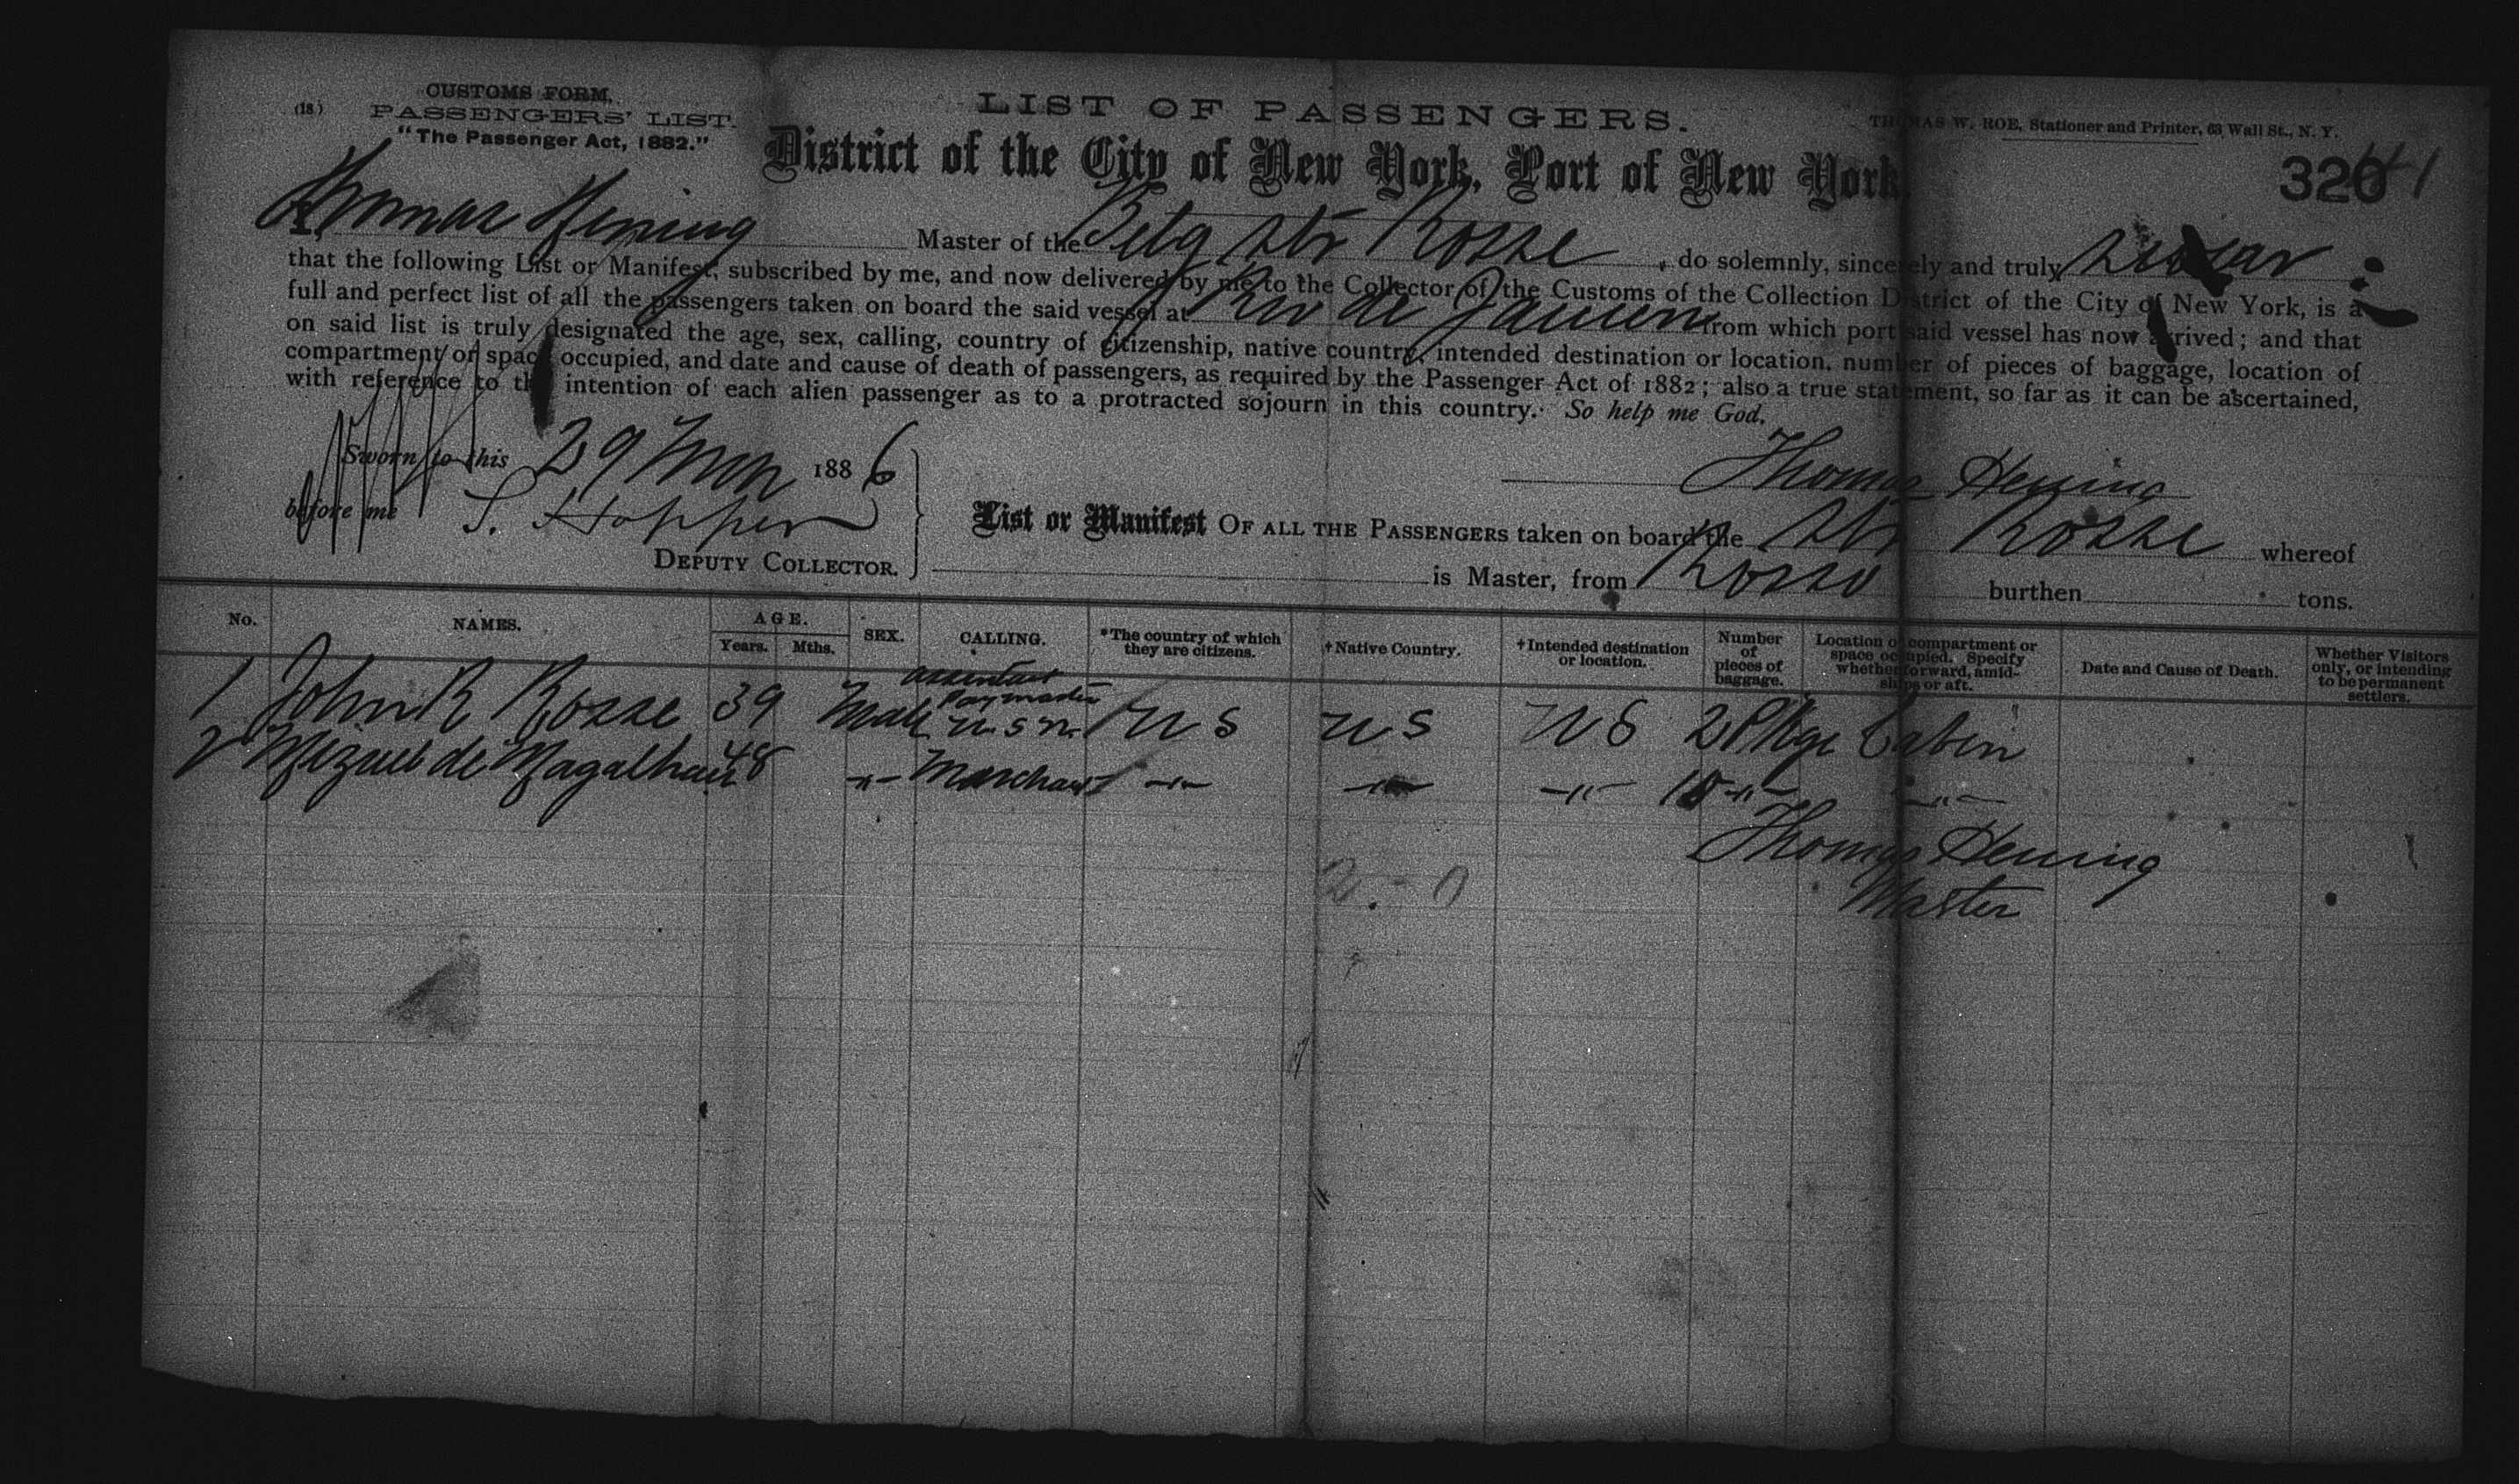 CUSTOMS FORM.
(18) PASSENGERS' LIST.
"The Passenger Act, 1882."
LIST OF PASSENGERS.
THOMAS W. ROE, Stationer and Printer, 63 Wall St., N. Y.
District of the City of New York, Port of New York.
320
I, Thomas Hening Master of the Belg Str Rosse, do solemnly, sincerely and truly swear
that the following List or Manifest, subscribed by me, and now delivered by me to the Collector of the Customs of the Collection District of the City of New York, is a
full and perfect list of all the passengers taken on board the said vessel at Rio de Janeiro from which port said vessel has now arrived; and that
on said list is truly designated the age, sex, calling, country of citizenship, native country, intended destination or location, number of pieces of baggage, location of
compartment or space occupied, and date and cause of death of passengers, as required by the Passenger Act of 1882; also a true statement, so far as it can be ascertained,
with reference to the intention of each alien passenger as to a protracted sojourn in this country. So help me God.
Sworn to this 29 Mar 1886
Thomas Hening
before me S. Hopper
DEPUTY COLLECTOR.
List or Manifest OF ALL THE PASSENGERS taken on board the Str Rosse whereof
is Master, from burthen tons.
No. NAMES. AGE. Years. Mths. SEX. CALLING. *The country of which they are citizens. †Native Country. †Intended destination or location. Number of pieces of baggage. Location of compartment or space occupied. Specify whether forward, amidships or aft. Date and Cause of Death. Whether Visitors only, or intending to be permanent settlers.
1 John R Rosse 39 Male assistant Paymaster U.S.N. U S U S U S 2 Pkge Cabin
2 Miguel de Magalhaes 48 -"- Merchant -"- -"- -"- -"- -"-
Thomas Hening
Master